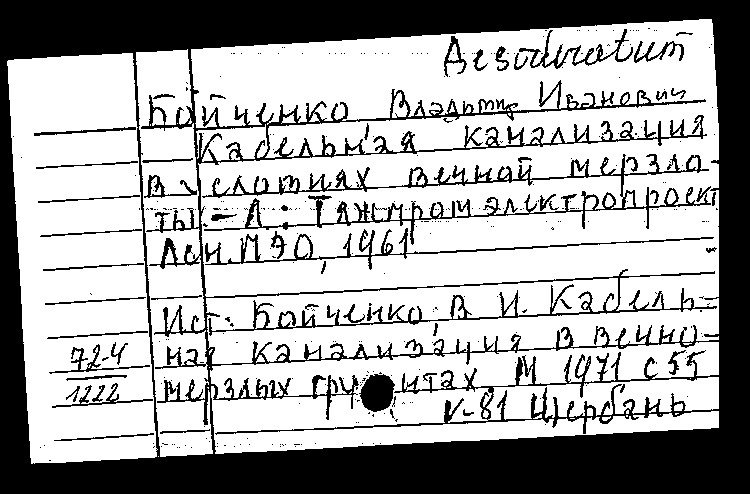 Desideratum
Бойченко, Владимир Иванович
Кабельная канализация
в условиях вечной мерзло-
ты. - Л.: Тяжпромэлектропроект
Лен. ПЭО, 1961
Ист: Бойченко, В. И. Кабель-
72-4 ная канализация в вечно-
1222 мерзлых грунтах М 1971 с 55
V-81 Щербань